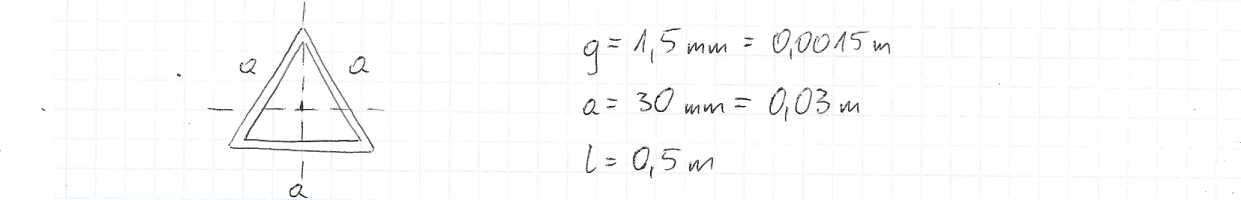 g = 1,5 mm = 0,0015 m
a a
a = 30 mm = 0,03 m
l = 0,5 m
a